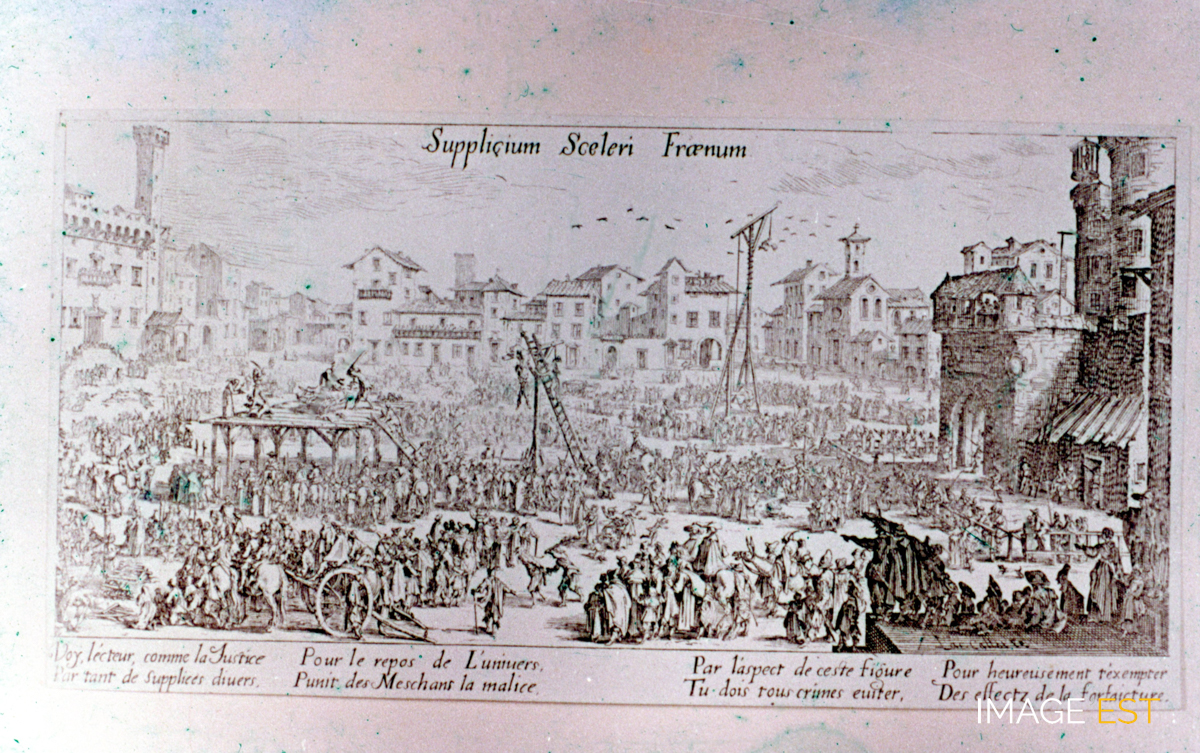 Suppliçium Sceleri Frœnum
Voy, lécteur, comme la Justice
Par tant de Supplices diuers,
Pour le repos de L'uniuers,
Punit des Meschans la malice,
Par l'aspect de ceste figure
Tu dois tous crimes euiter,
Pour heureusement t'exempter
Des effectz de la forfaicture.
IMAGE EST